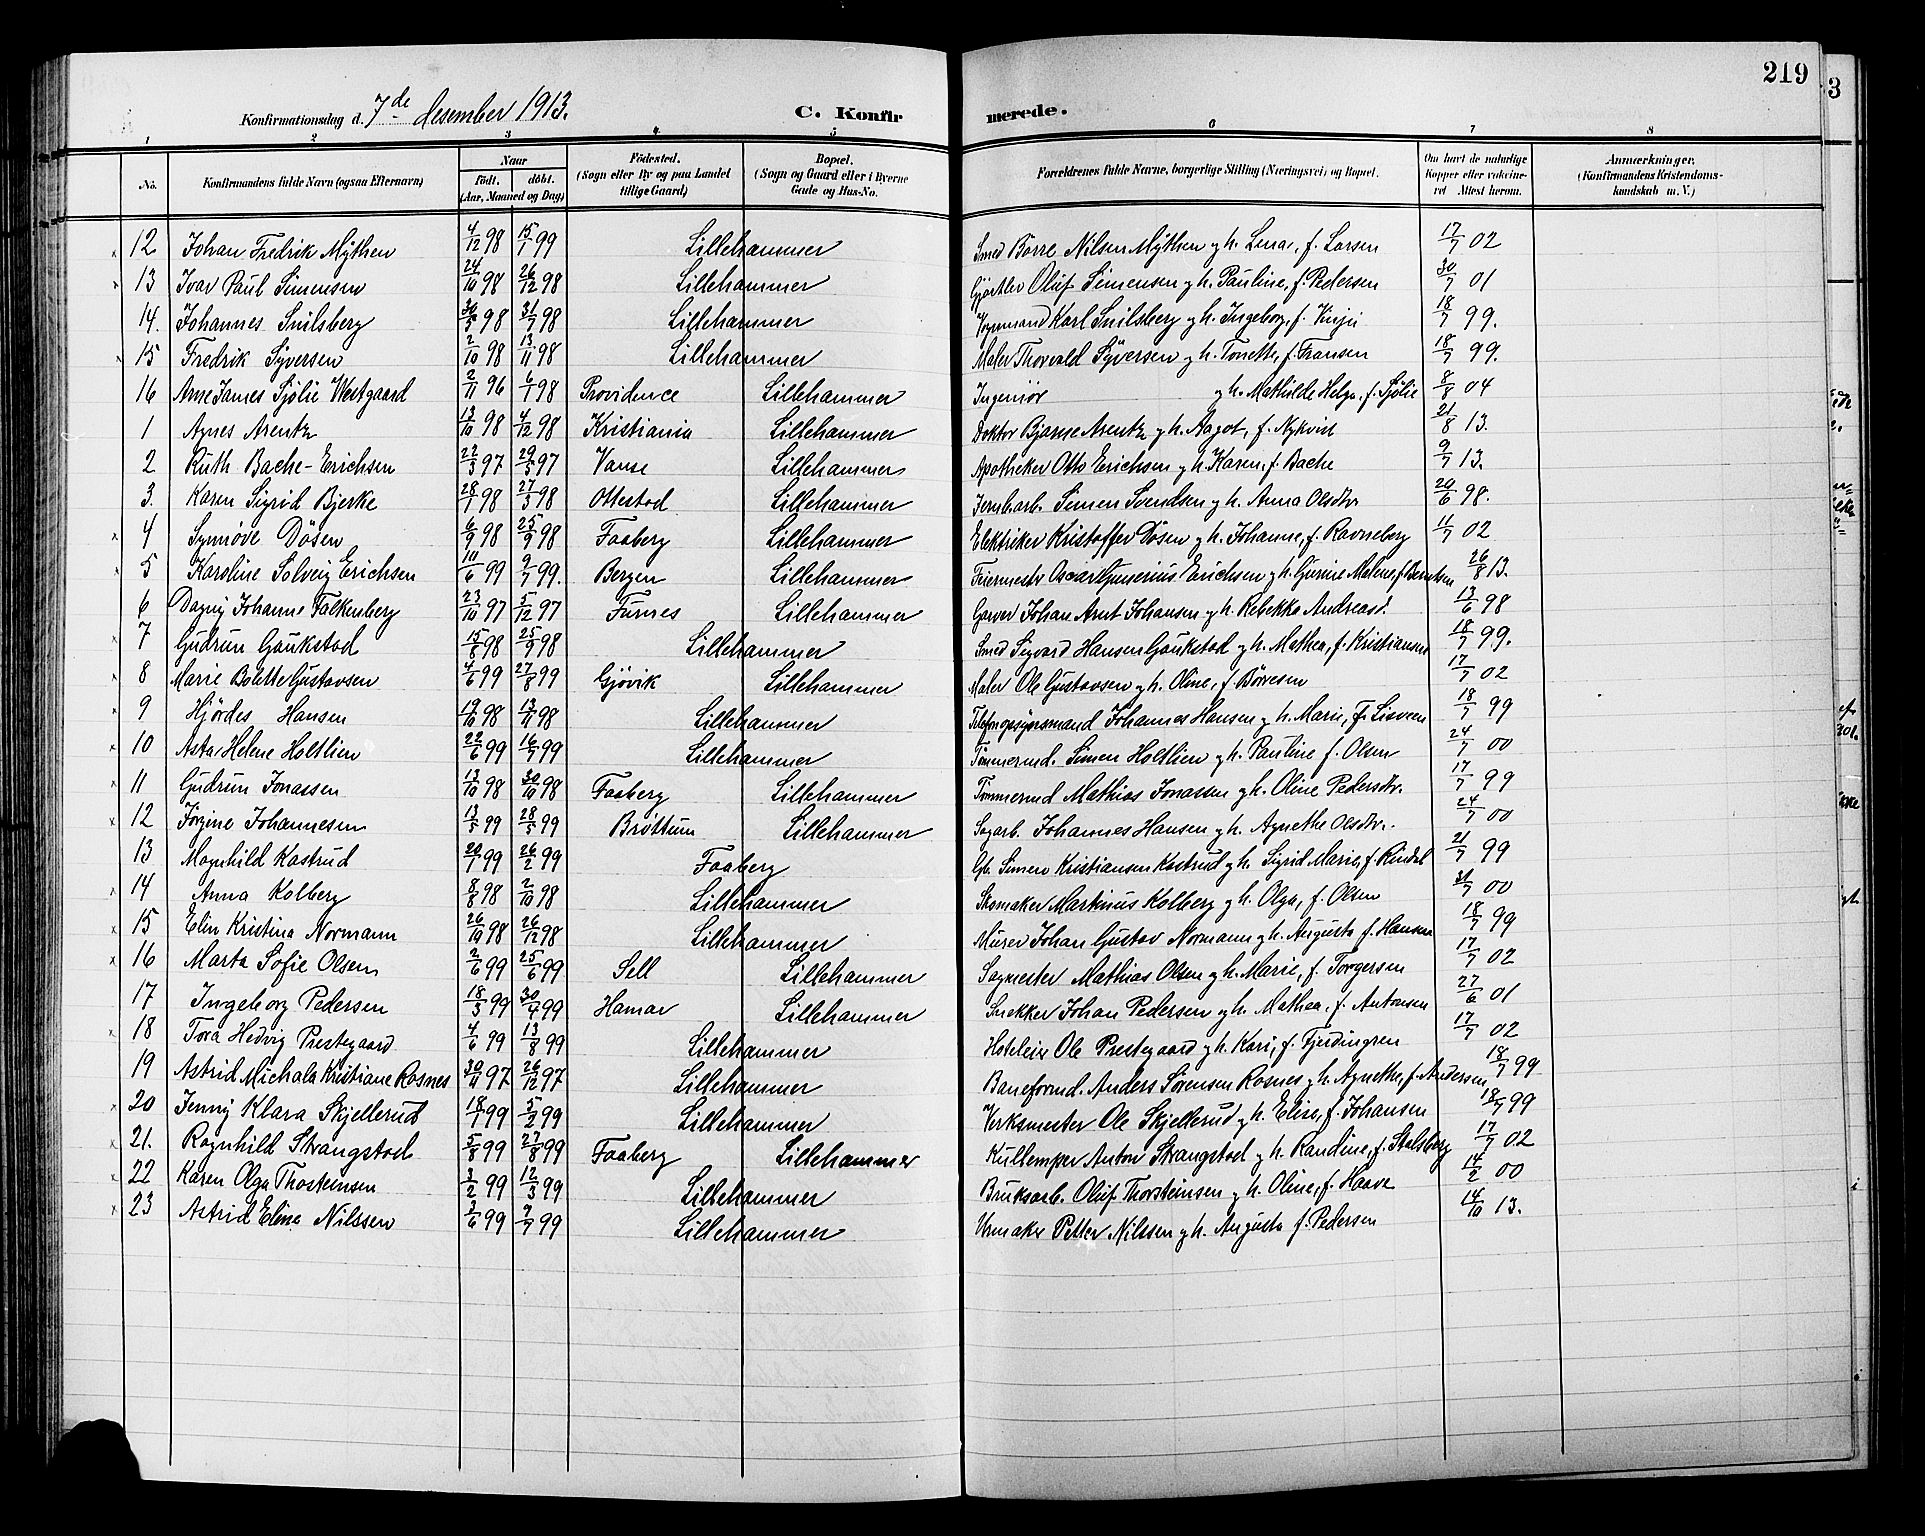 219
3
Konfirmationsdag d. 7de desember 1913.
C. Konfirmerede.
1 2 3 4 5 6 7 8
No. Konfirmandens fulde Navn (ogsaa Efternavn) Naar födt. döbt. (Aar, Maaned og Dag) Födested. (Sogn eller By og paa Landet tillige Gaard) Bopæl. (Sogn og Gaard eller i Byerne Gade og Hus-No. Forældrenes fulde Navne, borgerlige Stilling (Næringsvei) og Bopæl. Om havt de naturlige Kopper eller vakcineret Attest herom. Anmærkninger. (Konfirmandens Kristendomskundskab m. V.)
x 12 Johan Fredrik Mÿthen 4/12 98 15/1 99 Lillehammer Smed Börre Nilsen Mÿthen og h. Lena, f. Larsen 17/7 02
x 13 Ivar Paul Simensen 24/10 98 26/12 98 Lillehammer Gjørtler Oluf Simensen og h. Pauline, f. Pedersen 30/7 01
14. Johannes Snilsberg 30/5 98 31/7 98 Lillehammer Vognmand Karl Snilsberg og h. Ingeborg, f. 18/7 99.
x 15 Fredrik Syversen 2/10 98 13/11 98 Lillehammer Maler Thorvald Syversen og h. Tonette, f. Fransen 18/7 99.
16 Arne James Sjølie Westgaard 2/11 96 6/1 98 Providence Lillehammer Ingeniör og h. Mathilde Helga, f. Sjölie 8/8 04
1 Agnes Arentz 13/10 98 4/12 98 Kristiania Lillehammer Doktor Bjarne Arentz og h. Aagot, f. Nykvist 21/8 13.
2 Ruth Bache-Erichsen 22/3 97 29/5 97 Vanse Lillehammer Apotheker Otto Erichsen og h. Karen, f. Bache 9/7 13.
3. Karen Sigrid Bjerke 28/1 98 27/3 98 Ottestad Lillehammer Jernbarb. Simen Svendsen og h. Anna Olsdtr. 20/6 98.
x 4 Synnøve Dösen 6/9 98 25/9 98 Faaberg Lillehammer Elektriker Kristoffer Dösen og h. Johanne, f. Ravneberg 11/7 02
x 5 Karoline Solveig Erichsen 10/6 99 9/7 99. Bergen Lillehammer Feiermestr Oscar Gunerius Erichsen og h. Gurine Malene, f. Berntsen 26/8 13.
6 Dagny Johanne Falkenberg 23/10 97 5/12 97 Furnes Lillehammer Garver Johan Arnt Johansen og h. Rebekka Andreasd. 13/6 98
x 7 Gudrun Gaukstad 15/8 98 25/9 98 Lillehammer Smed Sigvard Hansen Gaukstad og h. Mathea, f. Kristiansen 18/7 99.
x 8 Marie Bolette Gustavsen 4/6 99 27/8 99 Gjövik Lillehammer Maler Ole Gustavsen og h. Oline, f. Börresen 17/7 02
x 9 Hjördes Hansen 19/10 98 13/11 98 Lillehammer Johannes Hansen og h. Marie, f. Lisveen 18/7 99
x 10 Asta Helene Holtlien 22/6 99 16/7 99 Lillehammer Tömmermd. Simen Holtlien og h. Pauline f. Olsen 24/7 00
x 11 Gudrun Jonassen 13/10 98 30/10 98 Faaberg Lillehammer Tömmermd Mathias Jonassen og h. Oline Pedersdtr. 17/7 99
x 12 Jörgine Johannesen 13/5 99 28/5 99 Bröttum Lillehammer Sagarb. Johannes Hansen og h. Agnethe Olsdtr. 24/7 00
13 Magnhild Kastrud 20/1 99 26/2 99 Faaberg Gb. Simen Kristiansen Kastrud og h. Sigrid Marie, f. Rindal 21/7 99
x 14 Anna Kolberg 8/8 98 2/10 98 Lillehammer Skomaker Martinus Kolberg og h. Olga, f. Olsen 31/7 00
x 15 Elin Kristina Normann 26/10 98 26/12 98 Lillehammer Murer Johan Gustav Normann og h. Augusta f. Hansen 18/7 99
x 16 Marta Sofie Olsen 2/6 99 25/6 99 Sell Lillehammer Sagmester Mathias Olsen og h. Marie, f. Torgersen 17/7 02
17 Ingeborg Pedersen 18/3 99 30/4 99 Hamar Lillehammer Snekker Johan Pedersen og h. Mathea, f. Antonsen 27/6 01
x 18 Tora Hedvig Prestegaard 4/6 99 13/8 99 Lillehammer Hoteleier Ole Prestegaard og h. Kari, f. Fjerdingren 17/7 02
19 Astrid Michala Kristiane Rosnes 30/11 97 26/12 97 Lillehammer Baneformd. Anders Sørensen Rosnes og h. Agnethe, f. Andersen 18/7 99
x 20 Jenny Klara Skjellerud 18/1 99 5/2 99 Lillehammer Verksmester Ole Skjellerud og h. Elise, f. Johansen 18/7 99
x 21. Ragnhild Strangstad 5/8 99 27/8 99 Faaberg Lillehammer Kullemper Anton Strangstad og h. Randine, f. Stalsberg 17/7 02
x 22 Karen Olga Thosteinsen 3/2 99 12/3 99 Lillehammer Bruksarb. Oluf Thorsteinsen og h. Oline, f. Haave 14/2 00
x 23 Astrid Eline Nilssen 3/6 99 9/7 99 Lillehammer Urmaker Petter Nilssen og h. Augusta f. Pedersen 14/10 13.